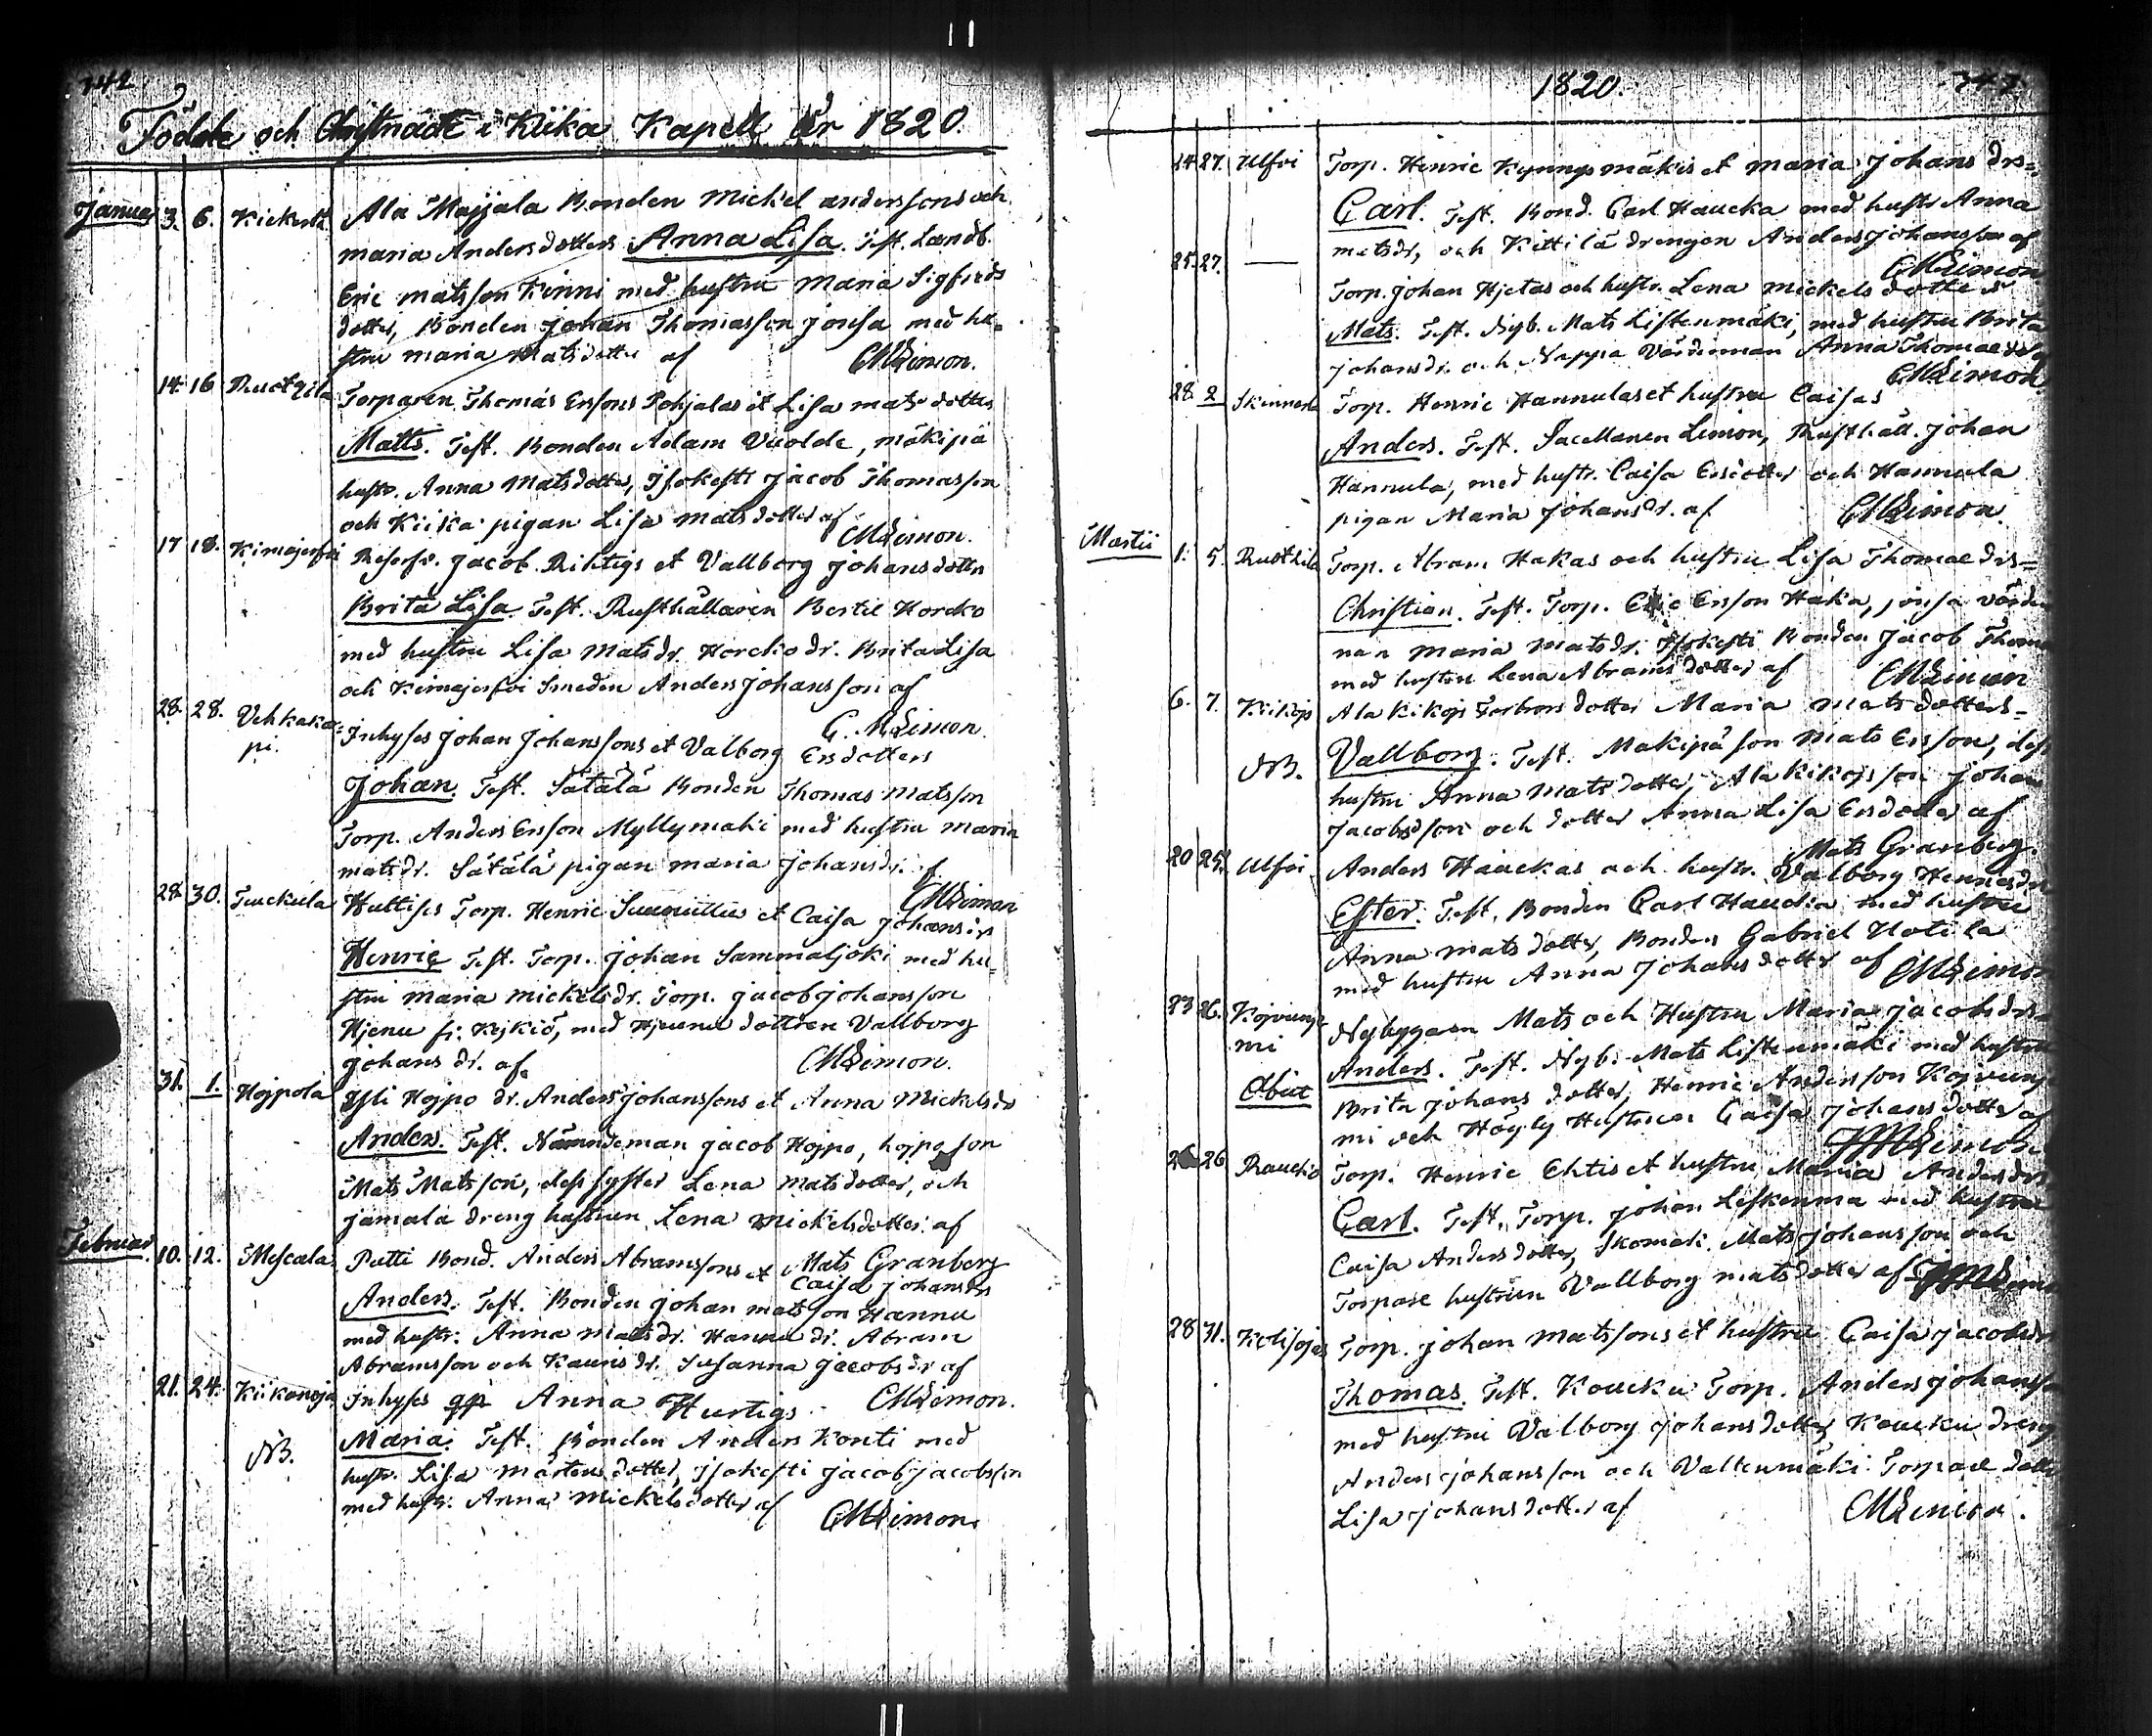 342
Födde och Christnade i Kiika Kapell År 1820.
Januar 3. 6. Kickerti Ala Majjala Bonden Mickel Anderssons och
Maria Andersdotters Anna Lisa. Test. Landb.
Eric Matsson Kinni med hustru Maria Sigfrids
dotter, Bonden Johan Thomasson Jonsa med hu=
stru Maria Matsdotter af CMLimon.
14. 16 Rustzila Torparen Thomas Ersons Pohjalas et Lisa Mats dotters
Matts. Test. Bonden Adam Vuolde, Mäkipä
hustr. Anna Matsdotter, Isokesti Jacob Thomasson
och Kiika pigan Lisa Matsdotter af
CMLimon.
17 18. Kimajerfvi Reserfv. Jacob Riktigs et Vallborg Johansdotters
Brita Lisa. Test. Rusthållaren Bertil Horcko
med hustru Lisa Matsdr. Horcko dr. Brita Lisa
och Kimajerfvi Smeden Anders Johansson af
C. MLimon.
28. 28. Vehkaka=
pi. Inhyses Johan Johanssons et Valborg Ersdotters
Johan. Test. Sätälä Bonden Thomas Matsson
Torp. Anders Erson Myllymäki med hustru Maria
Matsdr. Sätälä pigan Maria Johansdr. af
CMLimon
28. 30. Tuckula Huttises Torp. Henric et Caisa Johansdrs
Henric Test. Torp. Johan Sammaljoki med hu=
stru Maria Mickelsdr. Torp. Jacob Johansson
Hjenu fr. Kejkiö, med Hjuenu dottren Vallborg
Johans dr. af CMLimon.
31. 1. Hojpola Yli Hojpo dr. Anders Johanssons et Anna Mickelsdrs
Anders. Test. Nämndeman Jacob Hojpo, Hojpo son
Mats Matsson, dess syster Lena Matsdotter, och
Jamala dreng hustrun Lena Mickelsdotter af
Mats Granberg
Februar 10. 12. Mescala Putti Bond. Anders Abramssons et Caisa Johansdrs
Anders. Test. Bonden Johan Matsson Hannu
med hustr. Anna Matsdr. Hannu dr. Abram
Abramsson och Kauris dr. Susanna Jacobsdr af
CMLimon.
21. 24. Kiikanoja Inhyses qp Anna Hurtigs
NB. Maria. Test. Bonden Anders Konti med
hustr. Lisa Mårtensdotter, Isokesti Jacob Jacobsson
med hustr. Anna Mickelsdotter af
CMLimon.
1820. 343
14 27. Ulfvi Torp. Henric Kynnysmäkis et Maria Johans drs=
Carl. Test. Bond. Carl Haucka med hustr Anna
Matsdr, och Kittilä drengen Anders Johansson af
CMLimon
25. 27. — Torp. Johan Hjetas och hustr. Lena Mickels dotters
Mats. Test. Nyb. Mats Listenmäki, med hustru Brita
Johansdr. och Nappa Värdinnan Anna Thomaedr af
CMLimon
28 2 Skinnarla Torp. Henric Hannulas et hustru Caisas
Anders. Test. Sacellanen Limon, Rusthåll. Johan
Hannula, med hustr. Caisa Ersdotter och Hannula
pigan Maria Johansdr. af CMLimon.
Martii 1. 5. Rustzila Torp. Abram Hakas och hustru Lisa Thomae drs=
Christian. Test. Torp. Eric Erson Haka, Jonsa värdin
nan Maria Matsdr. Isokesti Bonden Jacob Thom
med hustru Lena Abramsdotter af CMLimon
6. 7. Kiikois Ala Kikojs dotter Maria Mats dotters=
NB. Vallborg. Test. Makipä son Mats Erson, dess
hustru Anna Matsdotter, Ala Kikojs son Johan
Jacobsson och dotter Anna Lisa Ersdotter af
Mats Granberg.
20 25. Ulfvi Anders Hauckas och hustr. Valborg Henricsdrs
Ester. Test. Bonden Carl Haucka med hustru
Anna Mats dotter, Bonden Gabriel Uotila
med hustru Anna Johansdotter af CMLimon
23 26. Kojvunje
mi Nybyggaren Mats och Hustru Maria Jacobsdrs
Obiit Anders. Test. Nyb. Mats Listenmäki med hustru
Brita Johans dotter, Henric Andersson Kojvunj
mi och Höglj Hustrun Caisa Johansdotter af
CMLimon
26 26 Rauckio Torp. Henric Ehtis et hustru Maria Andersdrs
Carl. Test. Torp. Johan Leskenma med hustru
Caisa Andersdotter, Skomak. Mats Johansson och
Torpare hustrun Vallborg Matsdotter af
28 31. Kolisoja Torp. Johan Matssons et hustru Caisa Jacobsdr
Thomas. Test. Koucku Torp. Anders Johanss
med hustru Valborg Johansdotter Koucku dreng
Anders Johansson och Valtenmäki Torpare dotter
Lisa Johansdotter af CMLimon.